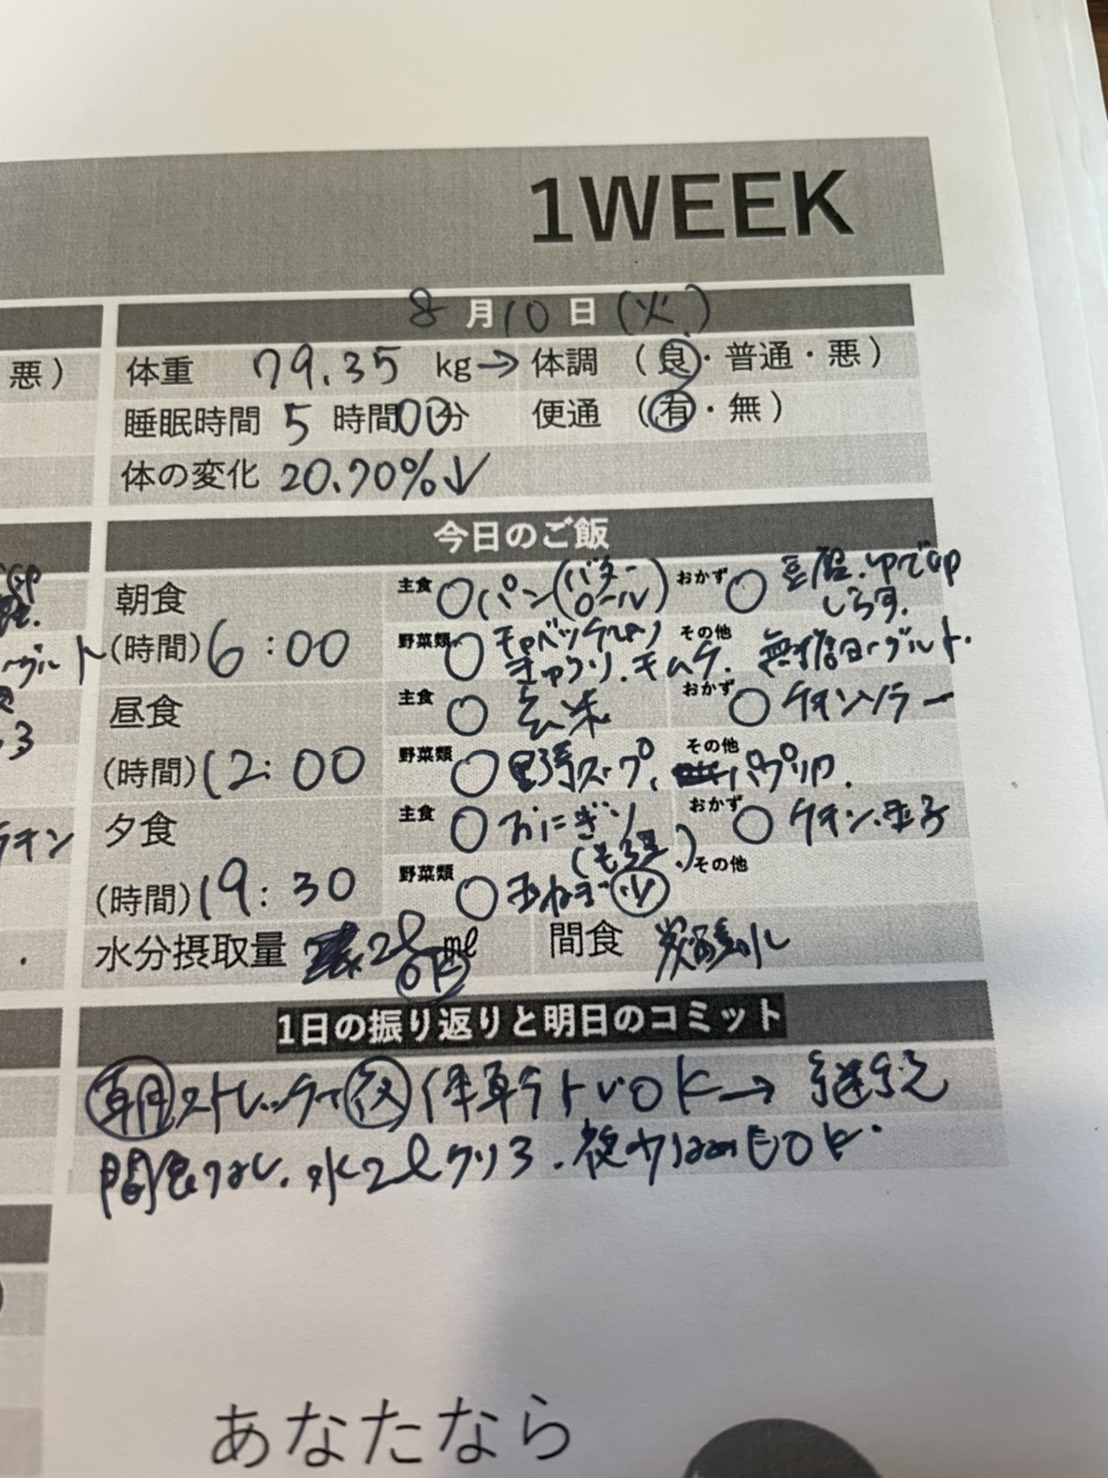 1WEEK
8月10日(火)
悪)
体重 79.35 kg→ 体調 (良・普通・悪)
睡眠時間 5時間00分 便通 (有・無)
体の変化 20.70%↓
今日のご飯
朝食 主食 ○パン(バターロール) おかず ○豆腐.ゆで卵
しらす.
(時間) 6:00 野菜類 ○キャベツ
きゅうり.キムチ. その他 無糖ヨーグルト.
昼食 主食 ○玄米 おかず ○チキンソテー
(時間) 12:00 野菜類 ○野菜スープ、その他 パプリカ.
夕食 主食 ○おにぎり おかず ○チキン.玉子
(時間) 19:30 野菜類 ○玉ねぎ 少 その他
水分摂取量 2ℓ OK mℓ 間食 炭酸水
1日の振り返りと明日のコミット
朝ストレッチ 夜体幹トレOK→継続
間食なし.水2ℓクリア.夜少なめもOK.
あなたなら